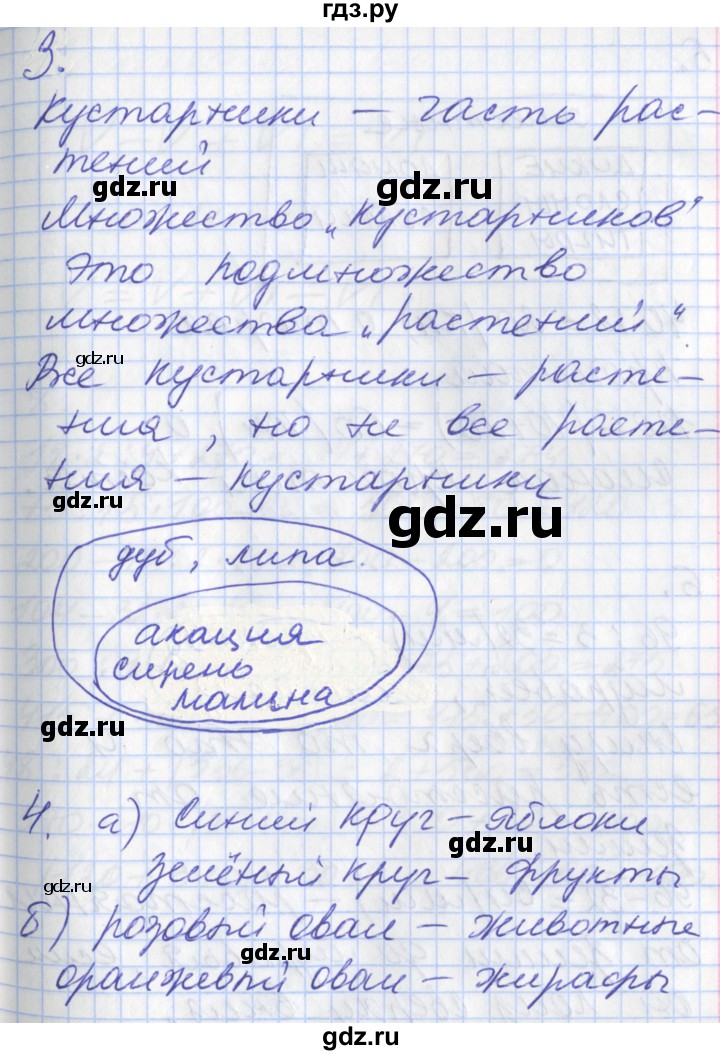 гдз.ру
3.
Кустарники – часть рас-
тений
gdz.ru
gdz.ru
Множество „Кустарников"
Это подмножество
множества „растений"
gdz.ru
Все кустарники – расте-
ния, но не все расте-
ния – кустарники
gdz.ru
gdz.ru
дуб, липа.
акация
сирень
малина
gdz.ru
4. а) Синий круг – яблоки
gdz.ru
зелёный круг – фрукты
gdz.ru
б) розовый овал – животные
gdz.ru
оранжевый овал – жирафы
gdz.ru
gdz.ru